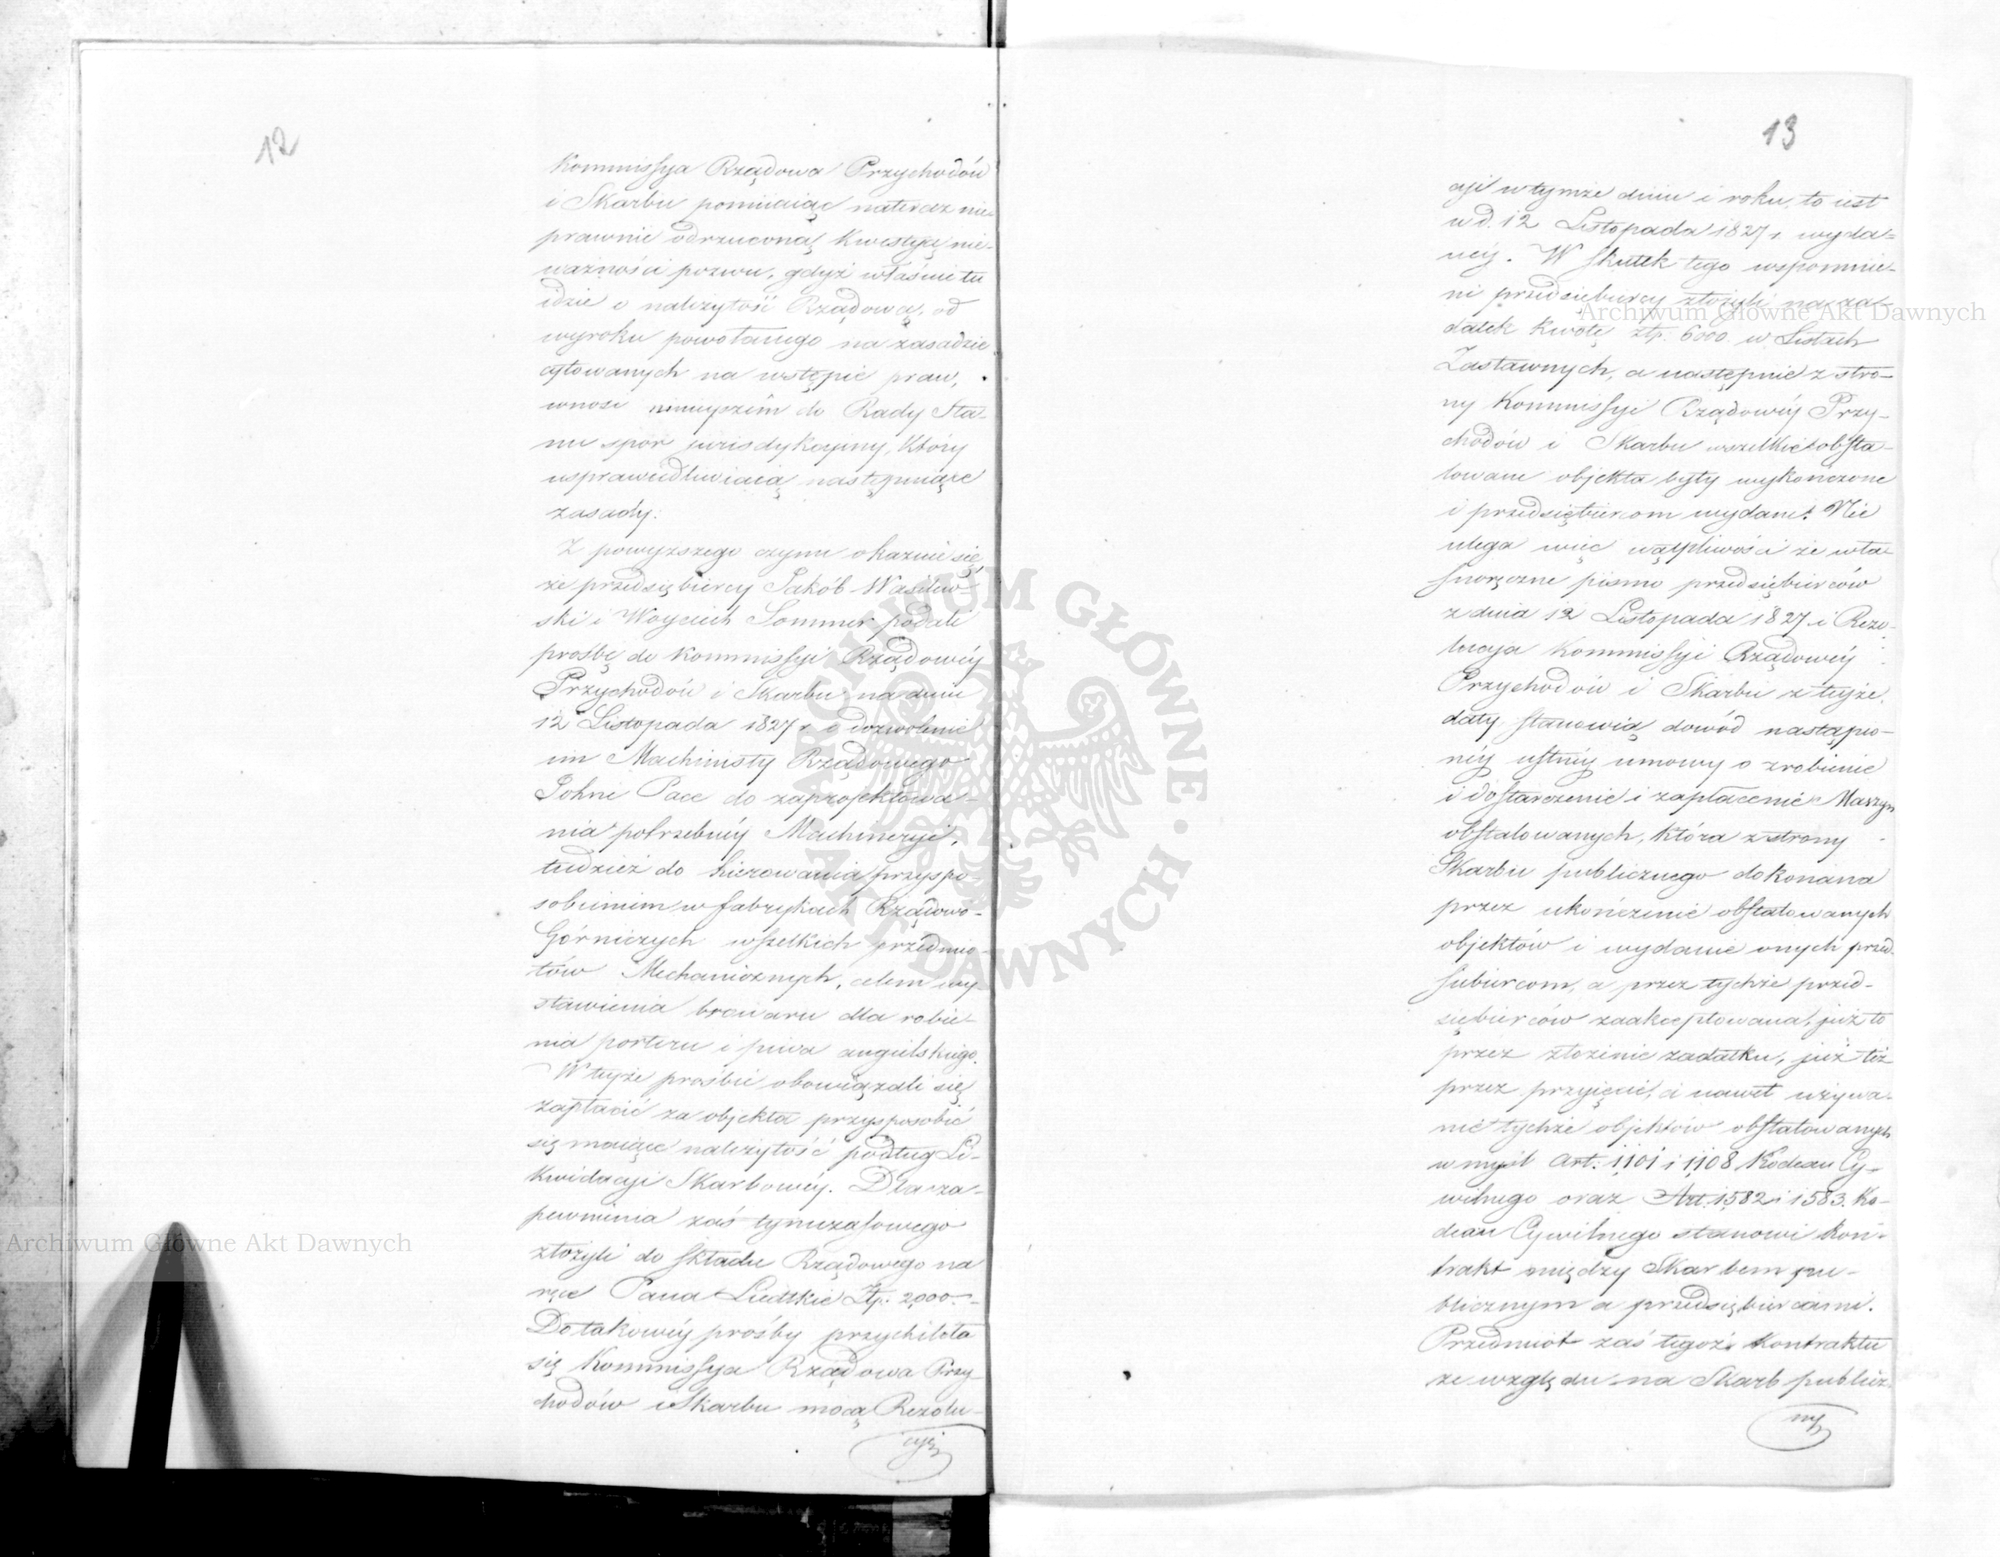 12
Kommissya Rządowa Przychodów
i Skarbu pomiiaiąc nateraz nie-
prawnie odrzuconą kwestyę nie-
ważności pozwu, gdyż właśnie tu
idzie o należytość Rządową, od
wyroku powołanego na zasadzie
cytowanych na wstępie praw,
wnosi ninieyszém do Rady Sta-
nu spór jurisdykcyiny, który
usprawiedliwiaią następuiące
zasady:
Z powyższego czynu okazuie się
że przedsiębiercy Jakób Wasilew-
ski i Woyciech Sommer podali
prośbę do Kommissyi Rządowéy
Przychodów i Skarbu na dniu
12 Listopada 1827 r. o dozwolenie
im Machinisty Rządowego
John Pace do zaprojektowa-
nia potrzebnéy Machineryi,
tudzież do kierowania przyspo-
sobieniem w fabrykach Rządowo-
Górniczych wszelkich przedmio-
tów Mechanicznych, celem wy-
stawienia browaru dla robie-
nia porteru i piwa angielskiego.
W teyże prośbie obowiązali się
zapłacić za objekta przysposobić
się maiące należytość podług Li-
kwidacyi Skarbowéy. Dla za-
pewnienia zaś tymczasowego
złożyli do składu Rządowego na
ręce Pana Złp. 2,000.-
Do takowéy prośby przychiliła
się Kommissya Rządowa Przy-
chodów i Skarbu mocą Rezolu-
cyi
13
cyi w tymże dniu i roku, to iest
w d. 12 Listopada 1827 r. wyda-
néy. W skutek tego wspomnie-
ni przedsiębiercy złożyli na za-
datek kwotę złp. 6000 w Listach
Zastawnych, a następnie z stro-
ny Kommissyi Rządowéy Przy-
chodów i Skarbu wszelkie obsta-
lowane objekta były wykończone
i przedsiębiercom wydane. Nie
ulega więc wątpliwości że wła-
snoręczne pismo przedsiębierców
z dnia 12 Listopada 1827 i Rezo-
lucya Kommissyi Rządowéy
Przychodów i Skarbu z teyże
daty stanowią dowód nastąpio-
néy ustnéy umowy o zrobienie
i dostarczenie i zapłacenie Maszyn
obstalowanych, która z strony
Skarbu publicznego dokonana
przez ukończenie obstalowanych
objektów i wydanie onych przed-
siebiercom, a przez tychże przed-
siębierców zaakceptowana, już to
przez złożenie zadatku, już też
przez przyięcie, a nawet używa-
nie tychże objektów obstalowanych
w myśl Art. 1101 i 1108 Kodexu Cy-
wilnego oraz Art. 1582 i 1583. Ko-
dexu Cywilnego stanowi kon-
trakt między Skarbem pu-
blicznym a przedsiębiercami.
Przedmiot zaś tegoż kontraktu
ze względu na Skarb publicz-
ny
Archiwum Główne Akt Dawnych
Archiwum Główne Akt Dawnych
ARCHIWUM GŁÓWNE · AKT DAWNYCH ·